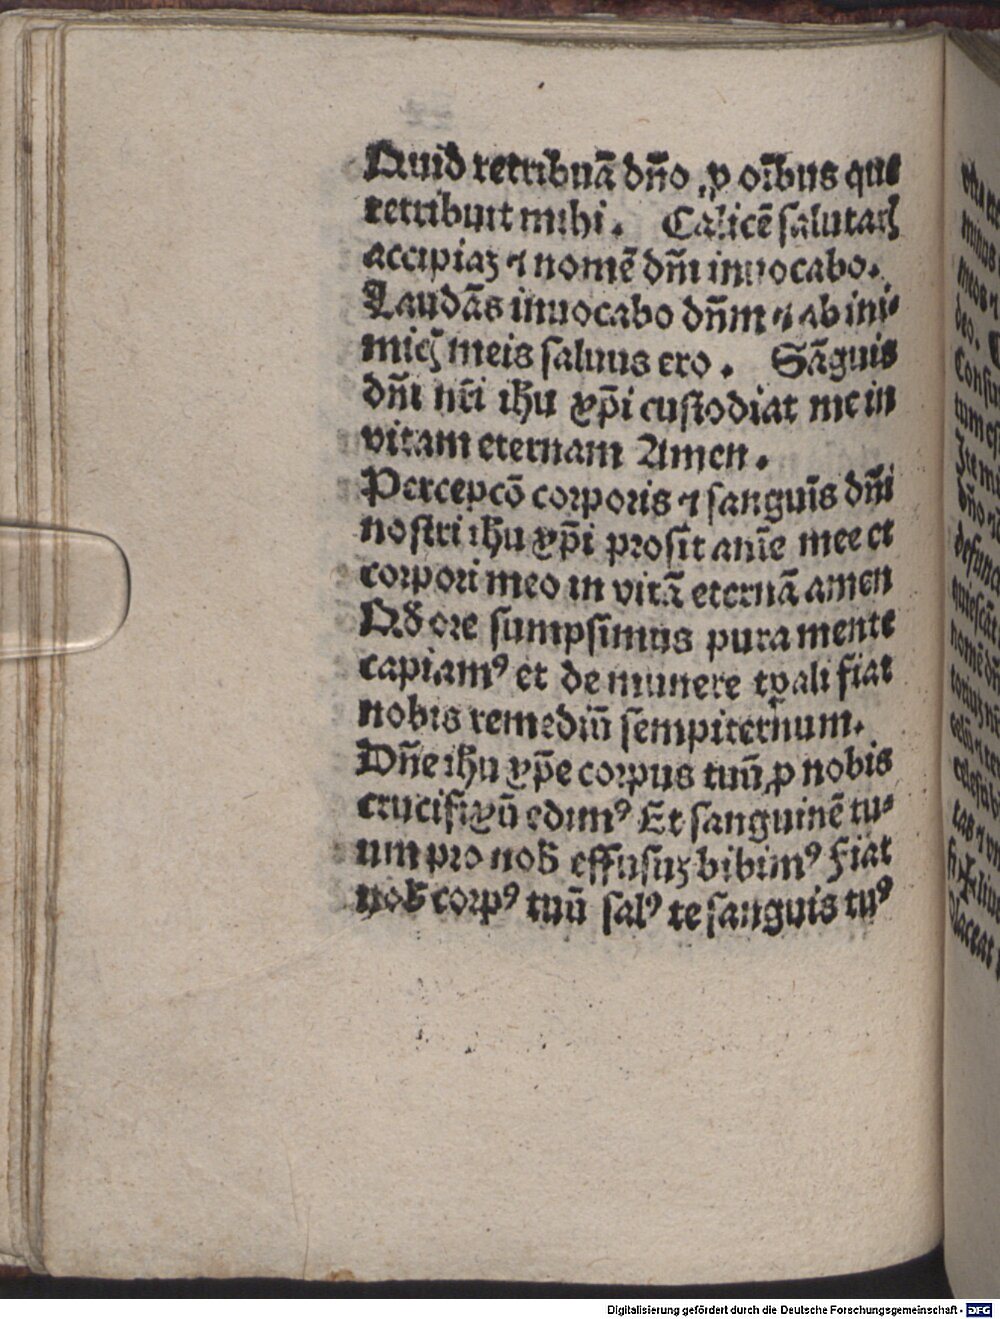 Quid retribuā dño ꝓ oībus que
retribuit mihi. Calicē salutaꝝ
accipiaꝫ ⁊ nomē dñi inuocabo.
Laudās inuocabo dñm ⁊ ab ini⸗
micꝭ meis saluus ero. Sāguis
dñi nr̄i ihu xp̄i custodiat me in
vitam eternam Amen.
Percepcō corporis ⁊ sanguīs dñi
nostri ihu xp̄i prosit anīe mee et
corpori meo in vitā eternā amen
Qđ ore sumpsimus pura mente
capiamꝰ et de munere tꝑali fiat
nobis remediū sempiternum.
Dñe ihu xp̄e corpus tuū ꝓ nobis
crucifixū edimꝰ Et sanguinē tu⸗
um pro nob̄ effusuꝫ bibimꝰ Fiat
nob̄ corpꝰ tuū salꝰ te sanguis tuꝰ
vita
minus
meos
deo.
Consu
tum es
dño
defunc
quiescāt
nomē dñ
Placeat
Digitalisierung gefördert durch die Deutsche Forschungsgemeinschaft - DFG